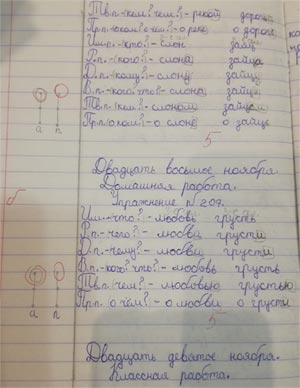 Тв.п.-(кем? чем?)-рекой дорогой
Пр.п.-(о ком? о чём?)-о реке о дороге
Им.п.-(кто?)-слон заяц
Р.п.-(кого?)-слона зайца
Д.п.-(кому?)-слону зайцу
В.п.-(кого? что?)-слона зайца
Тв.п.-(кем?)-слоном зайцем
Пр.п.(о ком?)-о слоне о зайце
а п
5
Двадцать восьмое ноября.
Домашняя работа.
Упражнение № 209.
Им.-что?-любовь грусть
Р.п.-чего?-любви грусти
Д.п.-чему?-любви грусти
В.п.-кого? что?-любовь грусть
Тв.п. чем?-любовью грустью
Пр.п. о чём?-о любви о грусти
а п
5
Двадцать девятое ноября.
Классная работа.